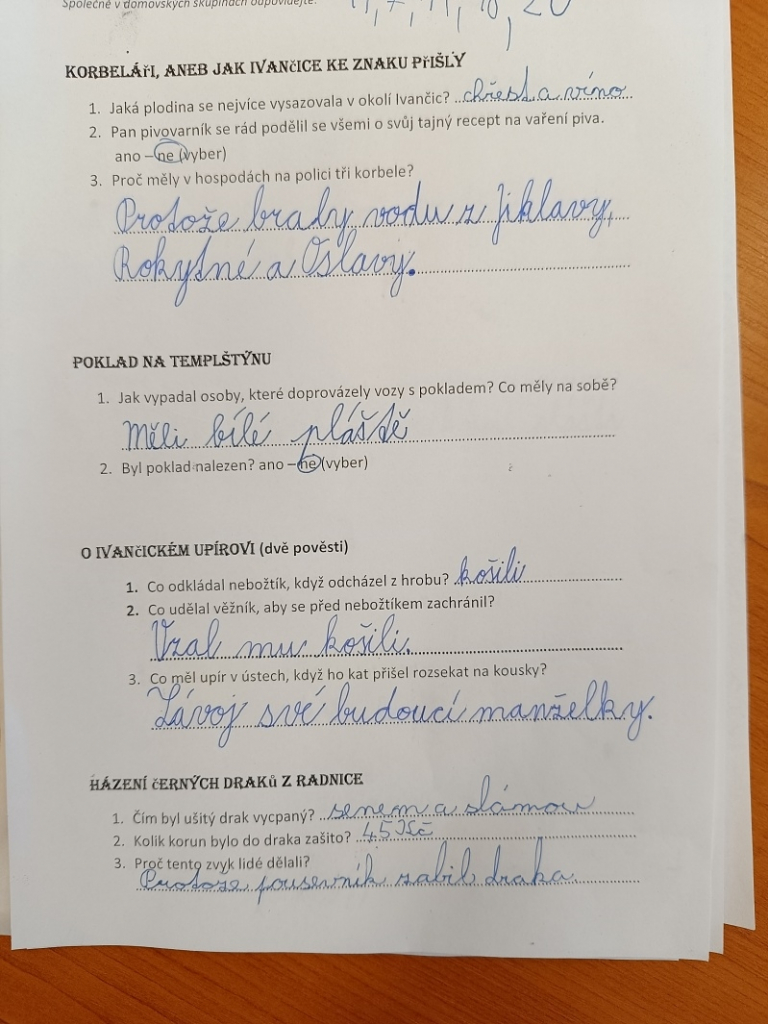 Společně v domovských skupinách odpovídejte.
KORBELÁŘI, ANEB JAK IVANČICE KE ZNAKU PŘIŠLY
1. Jaká plodina se nejvíce vysazovala v okolí Ivančic? chřest a víno
2. Pan pivovarník se rád podělil se všemi o svůj tajný recept na vaření piva.
ano – ne (vyber)
3. Proč měly v hospodách na polici tři korbele?
Protože braly vodu z Jihlavy,
Rokytné a Oslavy.
POKLAD NA TEMPLŠTÝNU
1. Jak vypadal osoby, které doprovázely vozy s pokladem? Co měly na sobě?
Měli bílé pláště
2. Byl poklad nalezen? ano – ne (vyber)
O IVANČICKÉM UPÍROVI (dvě pověsti)
1. Co odkládal nebožtík, když odcházel z hrobu? košili
2. Co udělal věžník, aby se před nebožtíkem zachránil?
Vzal mu košili.
3. Co měl upír v ústech, když ho kat přišel rozsekat na kousky?
Závoj své budoucí manželky.
HÁZENÍ ČERNÝCH DRAKŮ Z RADNICE
1. Čím byl ušitý drak vycpaný? senem a slámou
2. Kolik korun bylo do draka zašito? 45 Kč
3. Proč tento zvyk lidé dělali?
Protože poustevník zabil draka